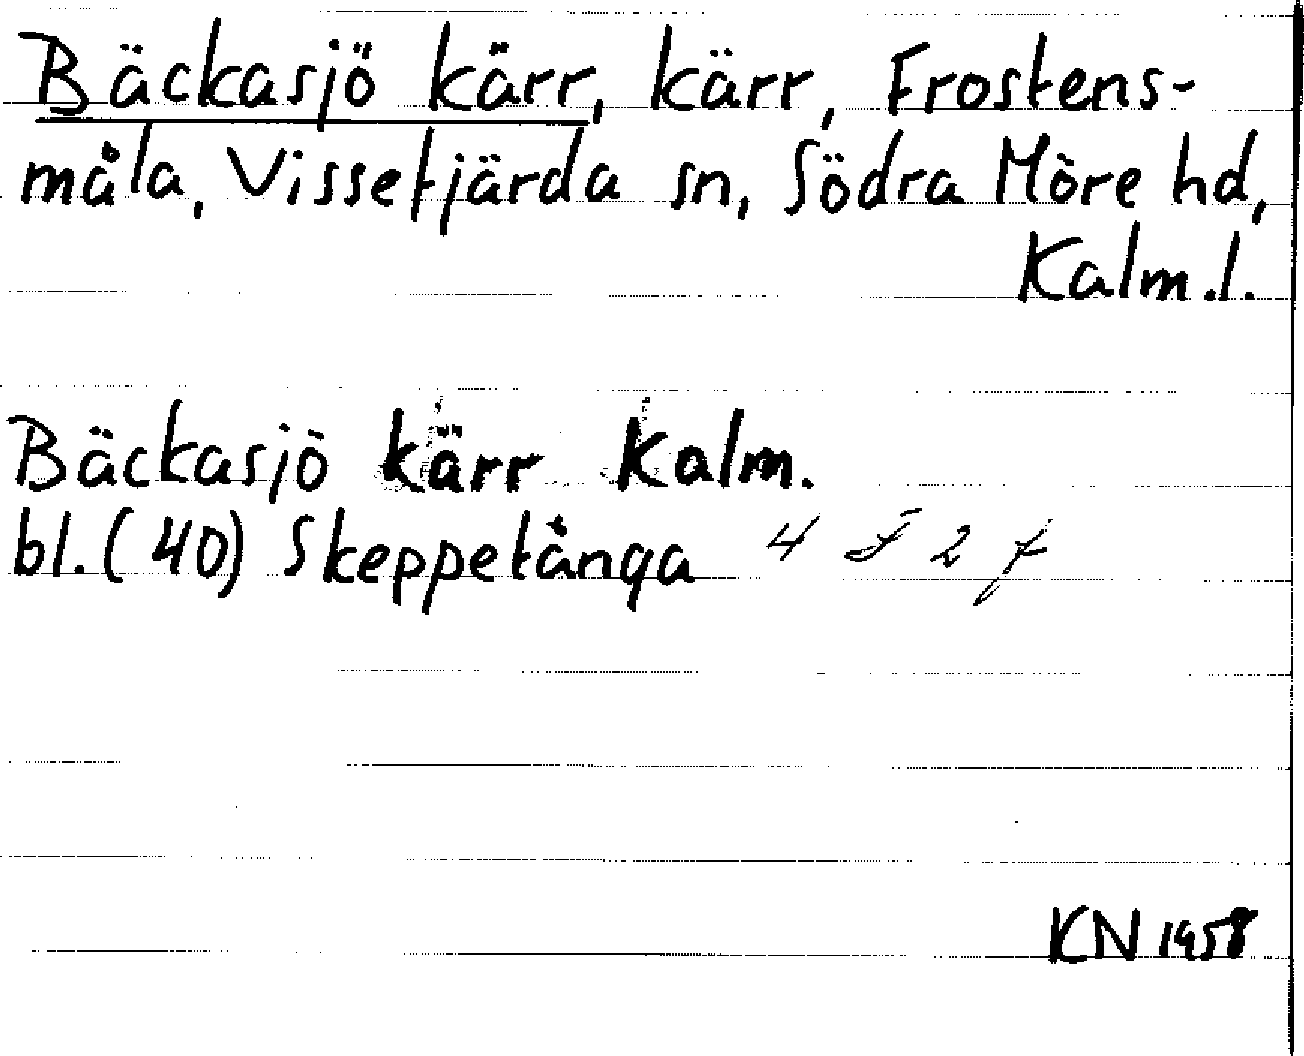 Bäckasjö kärr, kärr, Frostens-
måla, Vissefjärda sn, Södra Möre hd,
Kalm.l.
Bäckasjö kärr Kalm.
bl. (40) Skeppetånga 4 F 2 f
KN 1958